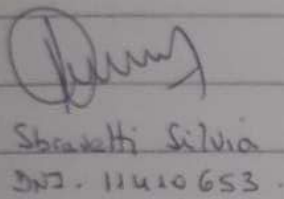 Sbravatti Silvia
DNI. 11410653.